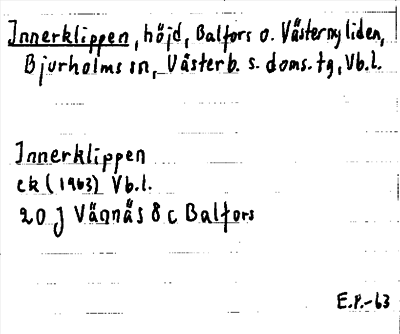 Innerklippen, höjd, Balfors o. Västernyliden,
Bjurholms sn, Västerb. s. doms. tg, Vb.l.
Innerklippen
ek (1963) Vb.l.
20 J Vännäs 8 c Balfors
E.P.-63